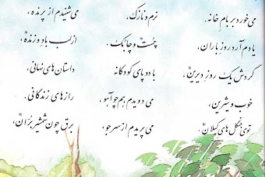 می خورد بر بام خانه.
یادم آرد روز باران،
گردش یک روز دیرین،
خوب و شیرین،
توی جنگل های گیلان.
نرم و نازک،
چست و چابک.
با دو پای کودکانه
می دویدم هم چو آهو،
می پریدم از سر جو،
می شنیدم از پرنده،
از لب باد وزنده،
داستان های نهانی،
رازهای زندگانی.
برق چون شمشیر بران،